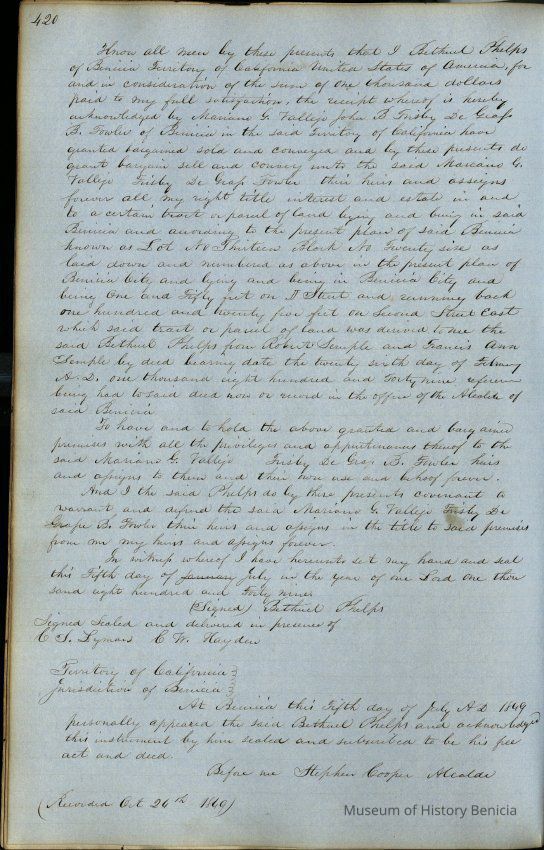 420
Know all men by these presents that I Bethuel Phelps
of Benicia Territory of California United States of America, for
and in consideration of the sum of one thousand dollars
paid to my full satisfaction, the receipt whereof is hereby
acknowledged by Mariano G. Vallejo John B Frisby De Grap
B. Fowler of Benicia in the said Territory of California have
granted bargained sold and conveyed and by these presents do
grant bargain sell and convey unto the said Mariano G.
Vallejo Frisby De Grap Fowler their heirs and assigns
forever all my right title interest and estate in and
to a certain tract or parcel of land lying and being in said
Benicia and according to the present plan of said Benicia
known as Lot No Thirteen Block No Twenty six as
laid down and numbered as above in the present plan of
Benicia City and lying and being in Benicia City and
being One and Fifty feet on D Street and running back
one hundred and twenty five feet on Second Street East
which said tract or parcel of land was derived to me the
said Bethuel Phelps from Robert Semple and Francis Ann
Semple by deed bearing date the twenty sixth day of
A.D. one thousand eight hundred and Forty nine, reference
being had to said deed now on record in the office of the Alcalde of
said Benicia
To have and to hold the above granted and bargained
premises with all the privileges and appurtenances thereof to the
said Mariano G. Vallejo Frisby De Grap B. Fowler heirs
and assigns to them and their own use and behoof forever.
And I the said Phelps do by these presents covenant &
warrant and defend the said Mariano G. Vallejo Frisby De
B. Fowler their heirs and assigns in the title to said premises
from me my heirs and assigns forever.
In witness whereof I have hereunto set my hand and seal
this Fifth day of January July in the year of our Lord One thou
sand eight hundred and Forty nine
(Signed) Bethuel Phelps
Signed Sealed and delivered in presence of
C S. Lyman C W. Hayden
Territory of California
Jurisdiction of Benicia
At Benicia this Fifth day of July A D 1849
personally appeared the said Bethuel Phelps and acknowledged
this instrument by him sealed and subscribed to be his free
act and deed.
Before me Stephen Cooper Alcalde
(Recorded Oct 26th 1849)
Museum of History Benicia